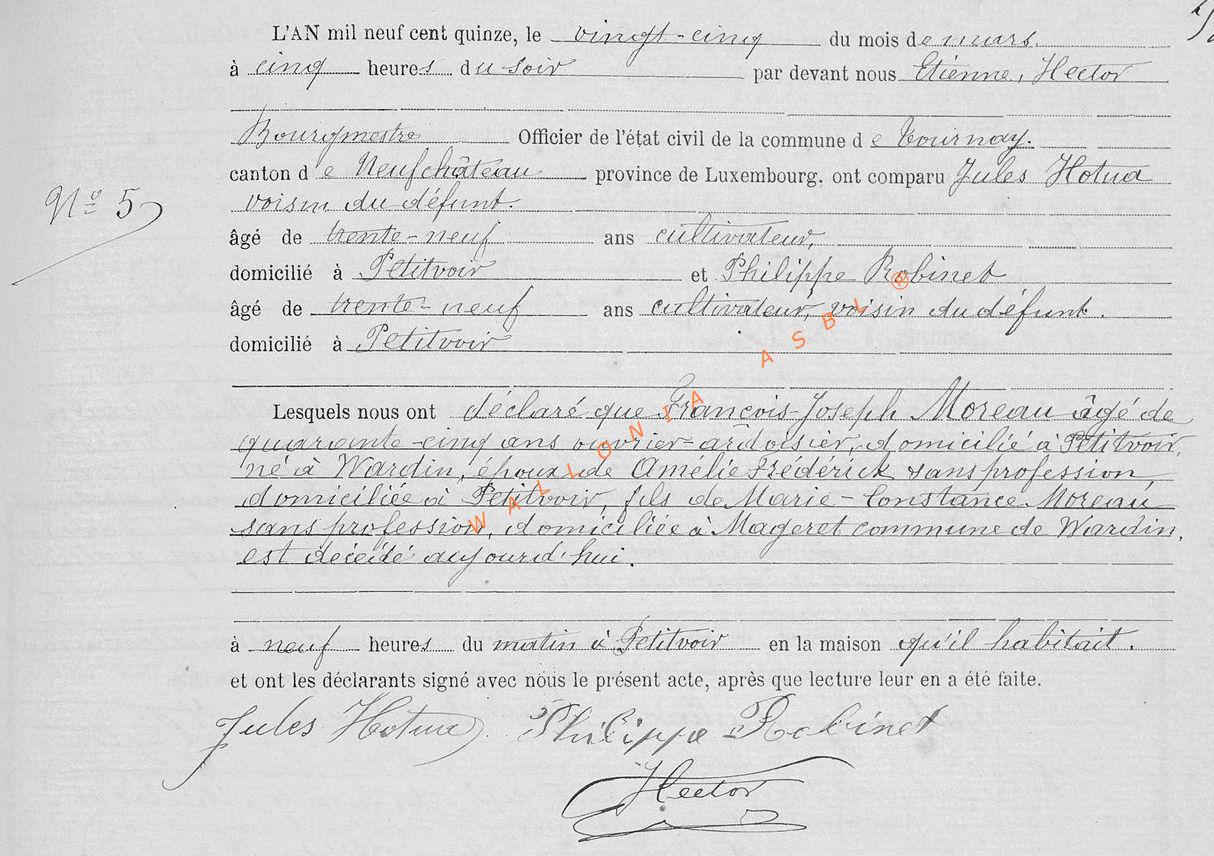 L'AN mil neuf cent quinze, le vingt-cinq du mois de mars.
à cinq heures du soir par devant nous Etienne, Hector
Bourgmestre Officier de l'état civil de la commune de Tournay.
canton de Neufchâteau province de Luxembourg, ont comparu Jules Hotua
N° 5
voisin du défunt.
âgé de trente-neuf ans cultivateur,
domicilié à Petitvoir et Philippe Robinet
âgé de trente-neuf ans cultivateur, voisin du défunt.
domicilié à Petitvoir
Lesquels nous ont déclaré que François-Joseph Moreau âgé de
quarante-cinq ans ouvrier-ardoisier, domicilié à Petitvoir,
né à Wardin, époux de Amelie Frédérick sans profession,
domiciliée à Petitvoir, fils de Marie-Constance Moreau
sans profession, domiciliée à Mageret commune de Wardin,
est décédé aujourd'hui.
à neuf heures du matin à Petitvoir en la maison qu'il habitait.
et ont les déclarants signé avec nous le présent acte, après que lecture leur en a été faite.
Jules Hotua Philippe Robinet
Hector
WALLONIA ASBL ®